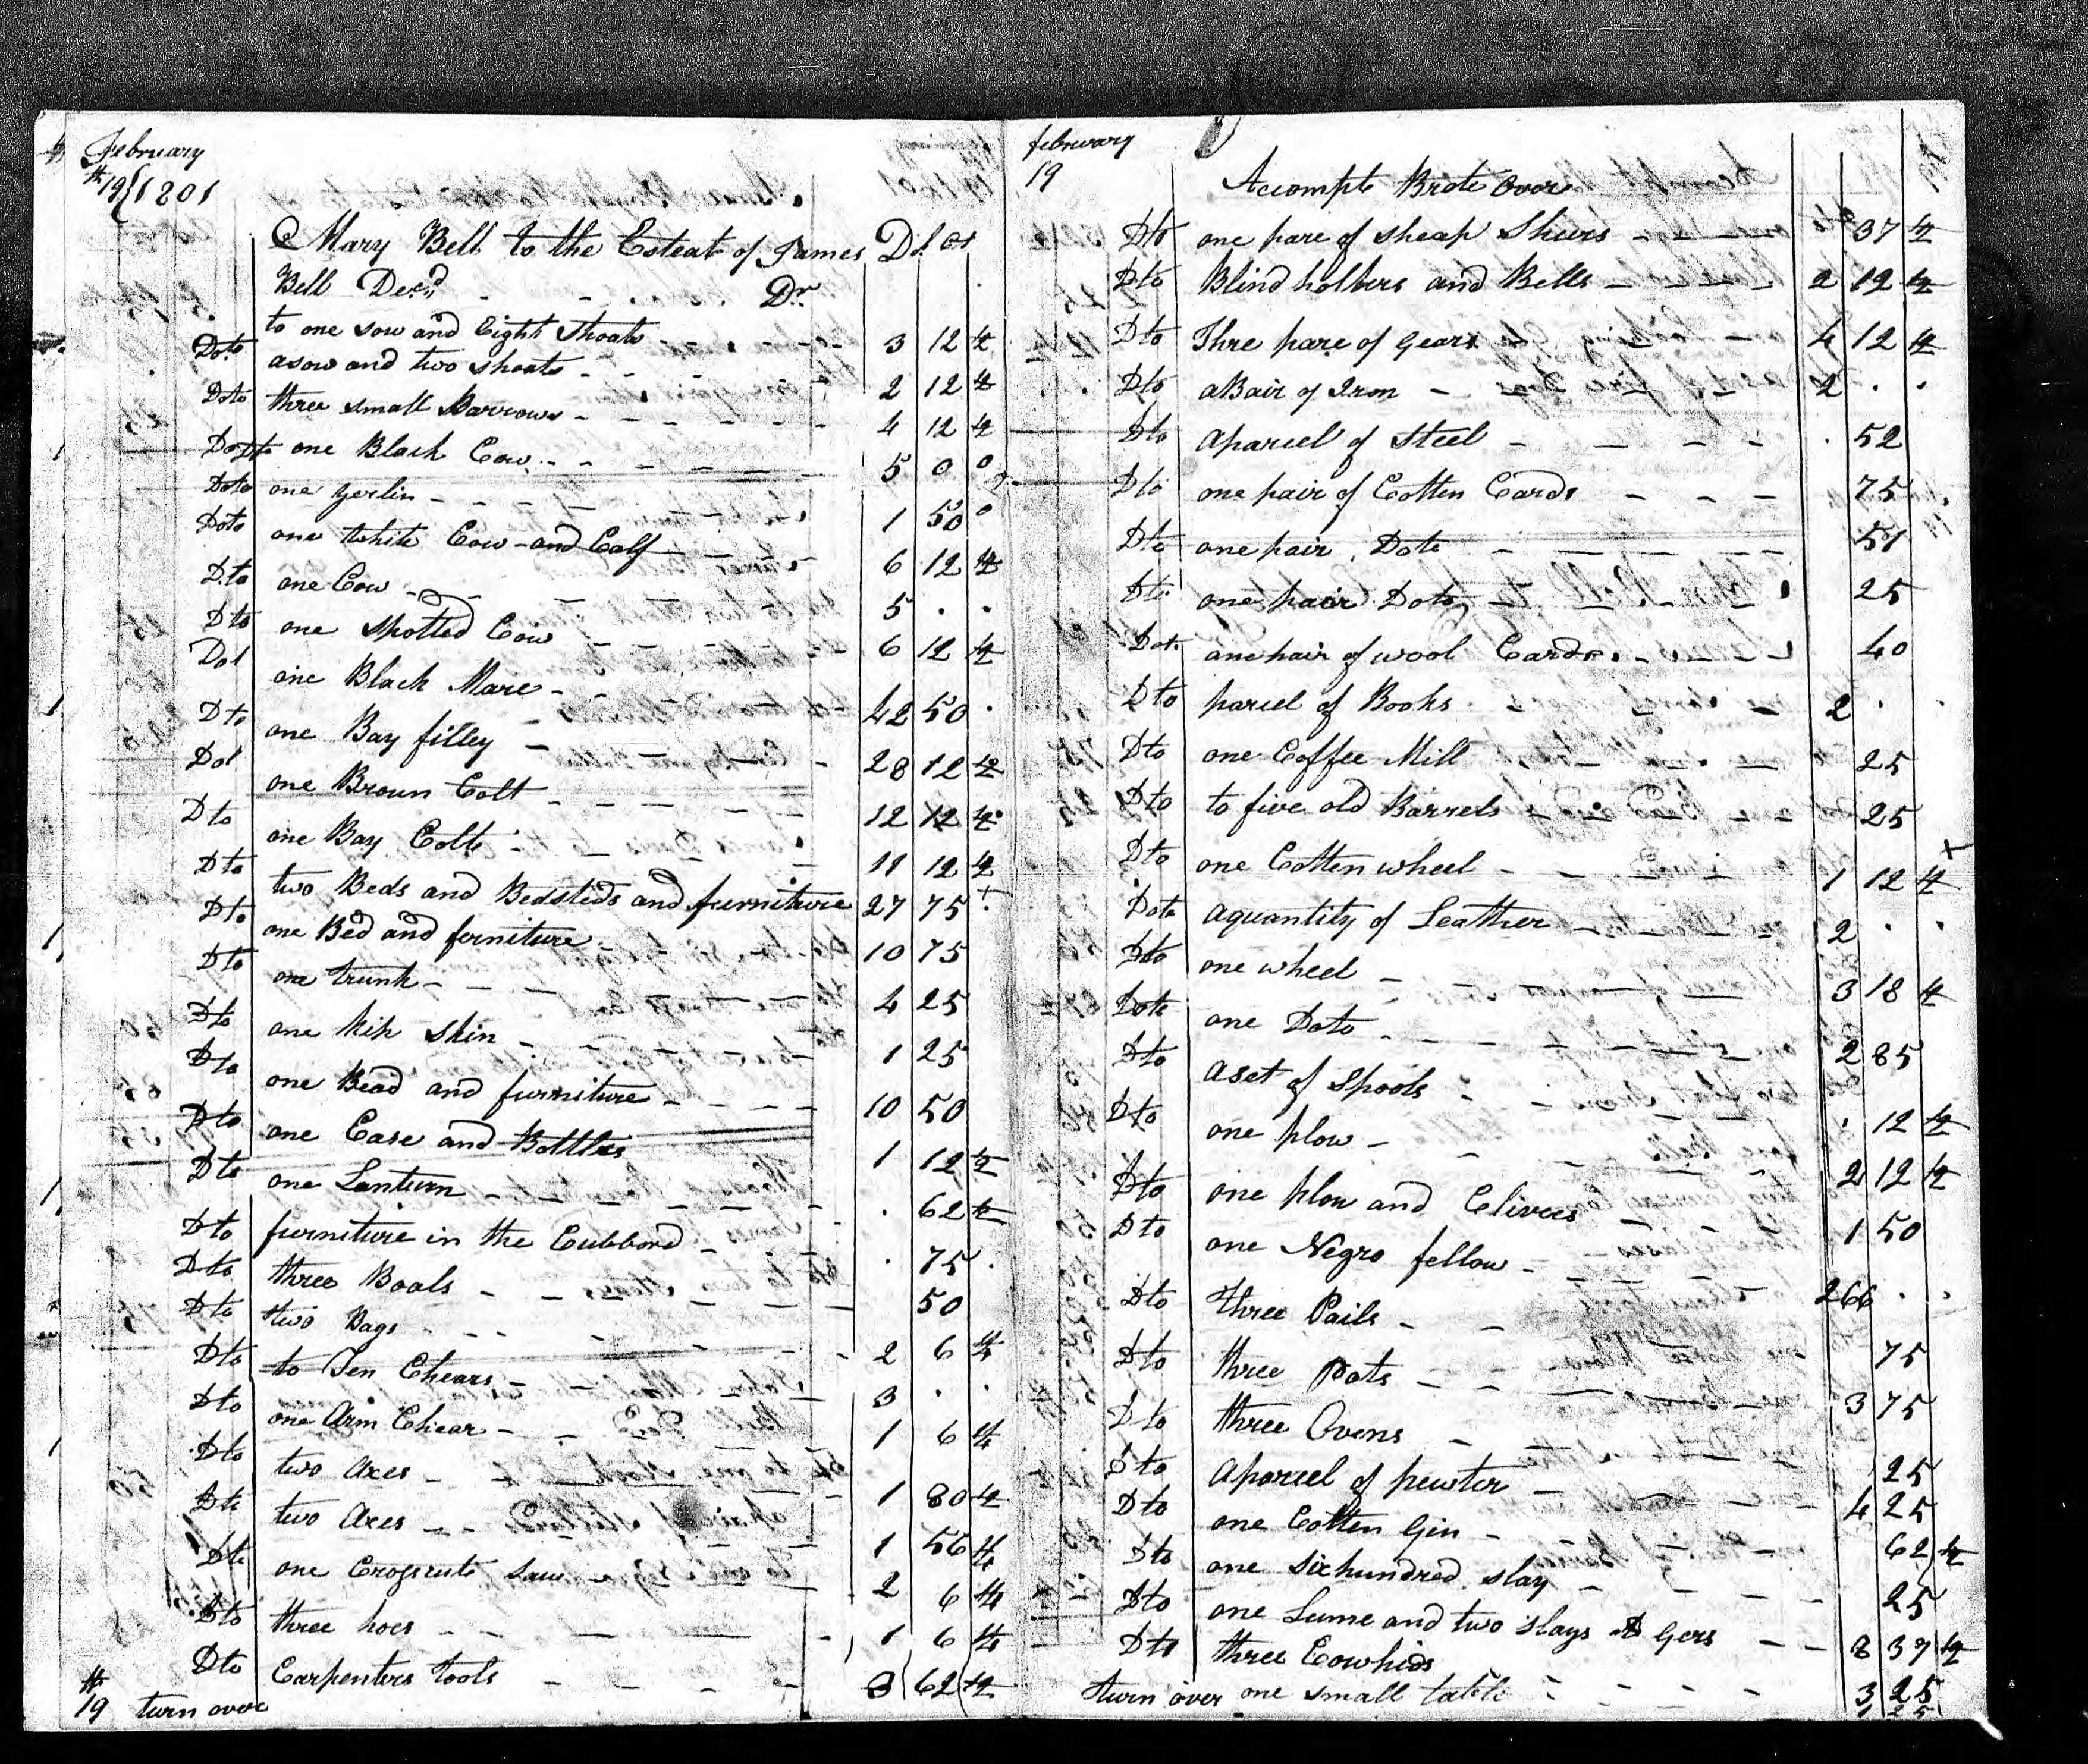 February
th 19 1801
Mary Bell to the Esteat of James Dl ct
Bell Decd Dr
to one sow and Eight Shoats 3 12 1/2
Doto asow and two shoats 2 12 1/2
Doto three small Barrows 4 12 1/2
Doto one Black Cow 5 0 0
Doto one yerlin 1 50 0
Doto one White Cow and Calf 6 12 1/2
Dto one Cow 5 . .
Dto one Spotted Cow 6 12 1/2
Dot one Black Mare 42 50 .
Dto one Bay filley 28 12 1/2
Dot one Brown Colt 12 12 1/2
Dto one Bay Colt 11 12 1/2
Dto two Beds and Bedsteds and furniture 27 75
Dto one Bed and forniture 10 75
Dto one trunk 4 25
Dto one kip skin 1 25
Dto one Bead and furniture 10 50
Dto one Case and Bottles 1 12 1/2
Dto one Lanturn . 62 1/2
Dto furniture in the Cubbord . 75 .
Dto three Boals 50
Dto two Bags 2 6 1/4
Dto to Ten Chears 3 . .
Dto one Arm Chear 1 6 1/4
Dto two Axes 1 80 1/2
Dto two Axes 1 56 1/4
Dto one Crosscute saw 2 6 1/4
Dto three hoes 1 6 1/4
Dto Carpenters tools 3 62 1/2
th
19 turn over
february
19
Accompte Brote over
Dto one pare of sheap Shears 37 1/2
Dto Blind holters and Bells 2 12 1/2
Dto Thre pare of Gears 4 12 1/2
Dto a Bair of Iron 2 . .
Dto aparcel of Steel . 52
Dto one pair of Cotten Cards 75
Dto one pair Doto 51
Dto one pair Doto 25
Doto one pair of wool Cards 40
Dto parcel of Books 2 . .
Dto one Coffee Mill 25
Dto to five old Barrels 25
Dto one Cotten wheel 1 12 1/2
Doto aquantity of Leather 2 . .
Dto one wheel 3 18 1/2
Doto one Doto 2 85
Dto aset of Spools . 12 1/2
Dto one plow 2 12 1/2
Dto one plow and Clivees 1 50
Dto one Negro fellow 266 . .
Dto three Pails 75
Dto three Pots 3 75
Dto three Ovens 25
Dto aparcel of pewter 4 25
Dto one Cotten Gin 62 1/2
Dto one sixhundred slay 25
Dto one Lume and two slays & Gers 8 37 1/2
Dto three Cowhids 3 25
turn over one small table 1 25